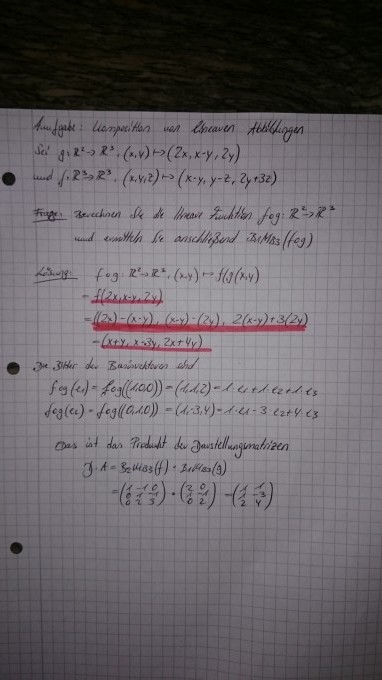 Aufgabe: Composition von linearen Abbildungen
Sei g: ℝ²→ℝ³, (x,y)↦(2x, x-y, 2y)
und f: ℝ³→ℝ³, (x,y,z)↦(x-y, y-z, 2y+3z)
Frage: Berechnen Sie die lineare Funktion fog: ℝ²→ℝ³
und ermitteln Sie anschließend B1MB3(fog)
Lösung: fog: ℝ²→ℝ³, (x,y)↦f(g(x,y)
= f(2x,x-y,2y)
=((2x)-(x-y), (x-y)-(2y), 2(x-y)+3(2y)
=(x+y, x-3y, 2x+4y)
Die Bilder der Basisvektoren sind
fog(e1)= fog((1,0,0))=(1,1,2)=1·e1+1·e2+1·e3
fog(e2)= fog((0,1,0))=(1,-3,4)=1·e1-3·e2+4·e3
Das ist das Produkt der Darstellungsmatrizen
B·A = B2MB3(f) · B1MB2(g)
=(1 -1 0 · (2 0 = (1 1
0 1 -1 1 -1 1 -3
0 2 3) 0 2) 2 4)